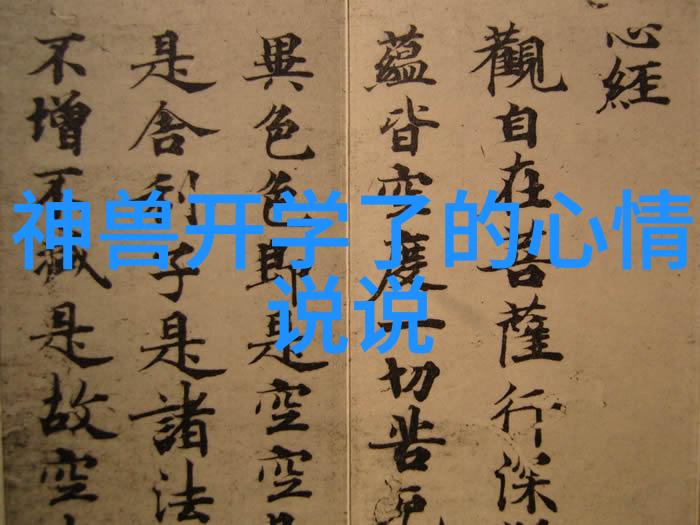 神兽开学了的心情
说说
心經
觀自在菩薩行深
蘊皆空度一切苦厄
異色色即是空空是
是舍利子是諸法
不增不減是故空